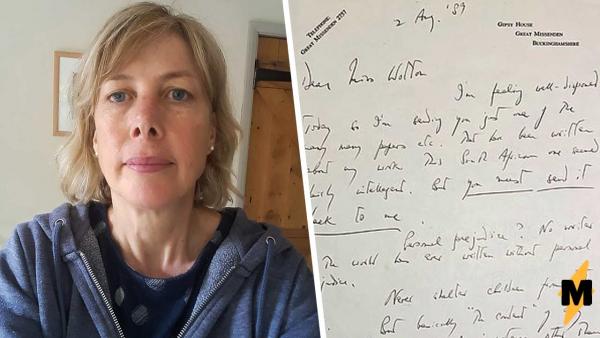 TELEPHONE
GREAT MISSENDEN 2757
2 Aug. '89
GIPSY HOUSE
GREAT MISSENDEN
BUCKINGHAMSHIRE
Dear Miss Wolton
I'm feeling well-disposed
today so I'm sending you just one of the
many many papers etc. that has been written
about my work. This South African one seemed
fairly intelligent. But you must send it
back to me.
Personal prejudice? No writer
in the world has ever written without personal
prejudice.
Never shelter children from
But basically "The content" of
other than
M